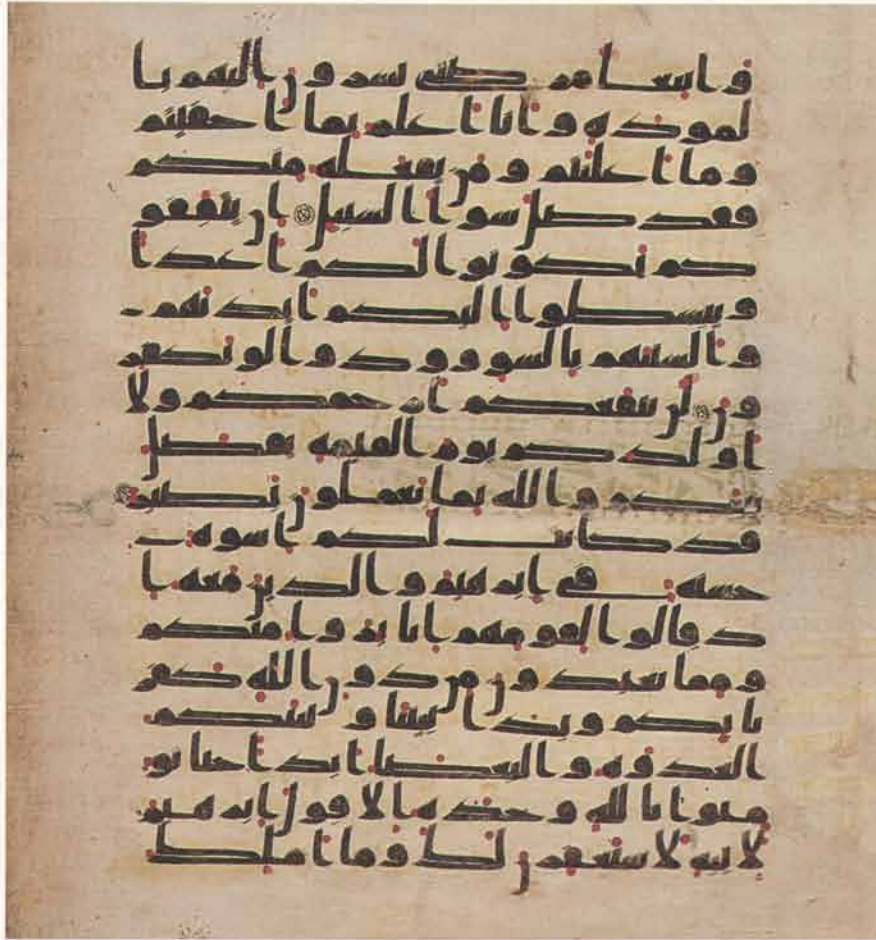 و ابتغا مرضتى تسرون اليهم با
لموده و انا اعلم بما اخفيتم
و ما اعلنتم و من يفعله منكم
فقد ضل سوا السبيل ان يثقفو
كم يكونوا لكم اعدا
و يبسطوا اليكم ايديهم
و السنتهم بالسو و ودوا لو تكفر
ون لن تنفعكم ارحمكم ولا
اولدكم يوم القيمه يفصل
بينكم و الله بما تعملون بصير
قد كانت لكم اسوه
حسنه في ابرهيم و الذين معه ا
ذ قالوا لقومهم انا بروا منكم
و مما تعبدون من دون الله كفر
نا بكم و بدا بيننا و بينكم
العدوه و البغضا ابدا حتا تو
منوا بالله وحده الا قول ابرهيم
لابيه لاستغفرن لك و ما املك